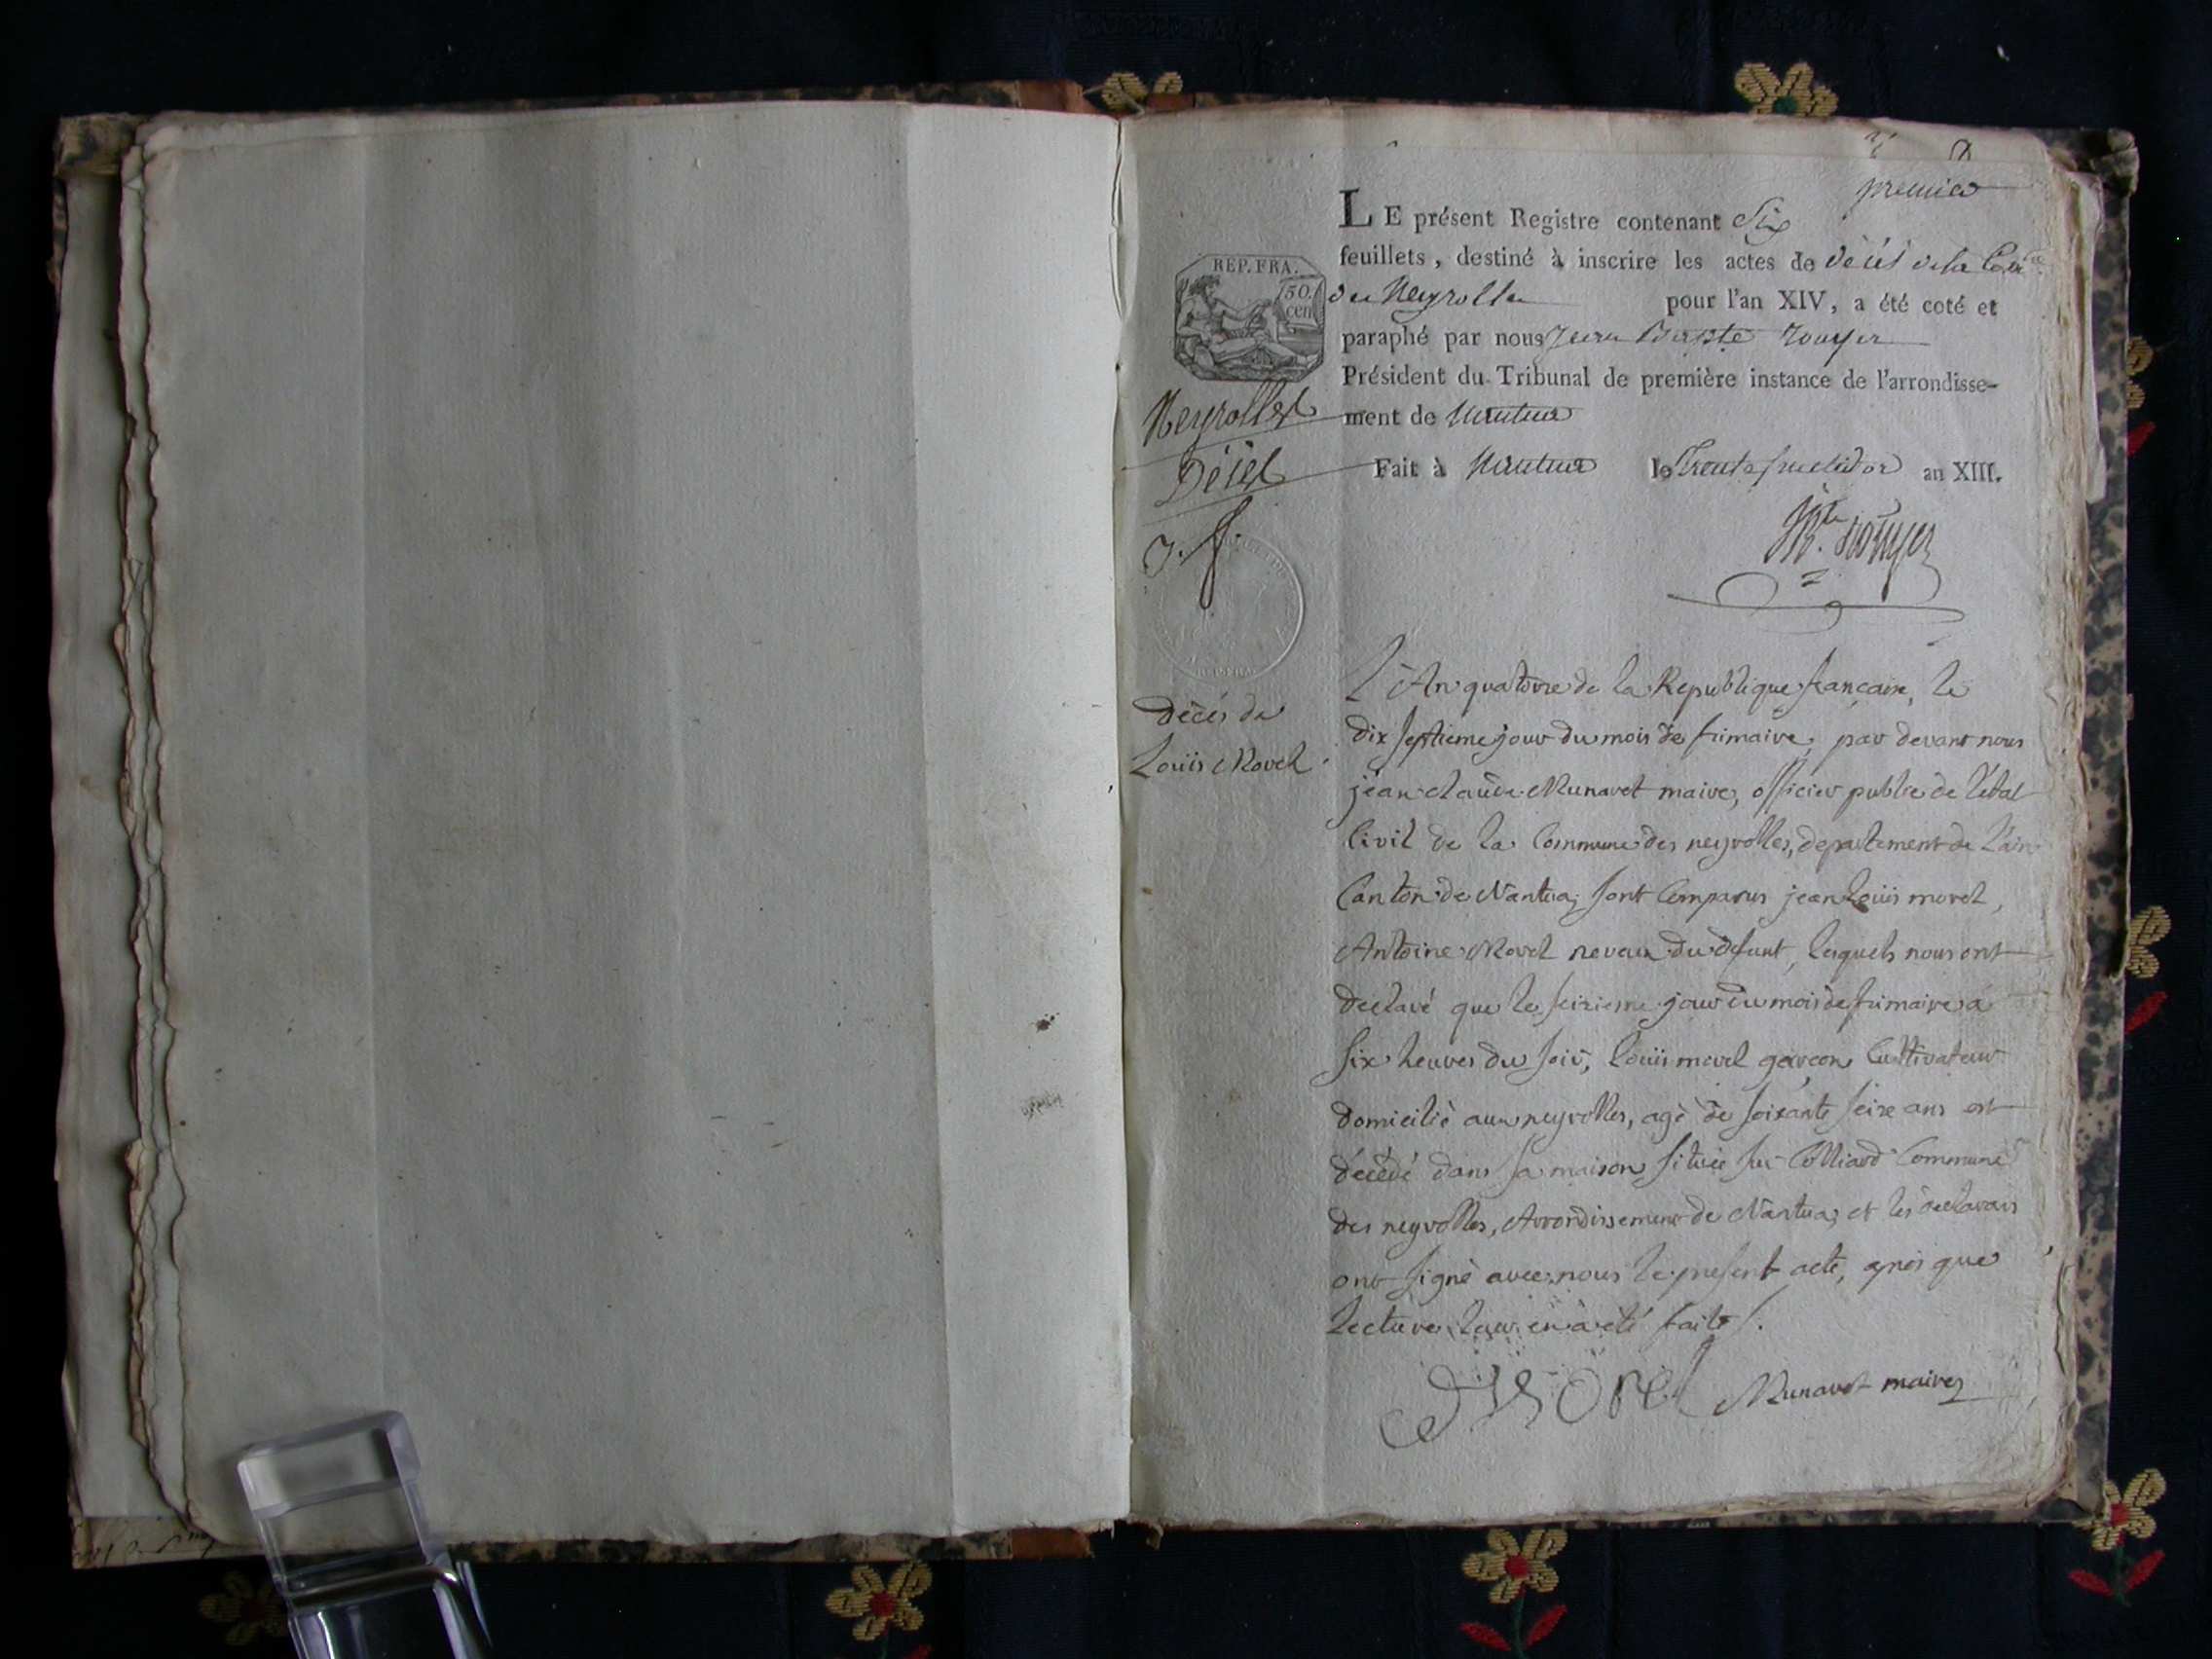 premier
LE présent Registre contenant Six
feuillets, destiné à inscrire les actes de décès de la Com.ne
des Neyrolles pour l'an XIV, a été coté et
paraphé par nous Jean Baptste Rouyer
Président du Tribunal de première instance de l'arrondisse-
ment de Nantua
Fait à Nantua le Trente fructidor an XIII.
REP. FRA.
50.
cen
Neyrolles
Décès
JBte Rouyer
Décès de
Loüis Morel
L'An quatorze de la Republique francaise, le
dix septieme jour du mois de frimaire, par devant nous
jean claude Munavet maire, officier public de l'état
Civil de la Commune des neyrolles, departement de l'ain
Canton de Nantua, sont Comparus jean loüis morel,
Antoine Morel neveux du défunt, lesquels nous ont
declaré que le seizieme jour du mois de frimaire à
six heures du soir, loüis morel garcon Cultivateur
domicilié aux neyrolles, agé de soixante seize ans est
décédé dans sa maison située sur Colliard Commune
des neyrolles, Arrondissement de Nantua, et les declarans
ont signé avec nous le present acte, après que
lecture leur en à été faite.
Morel Munavet maire